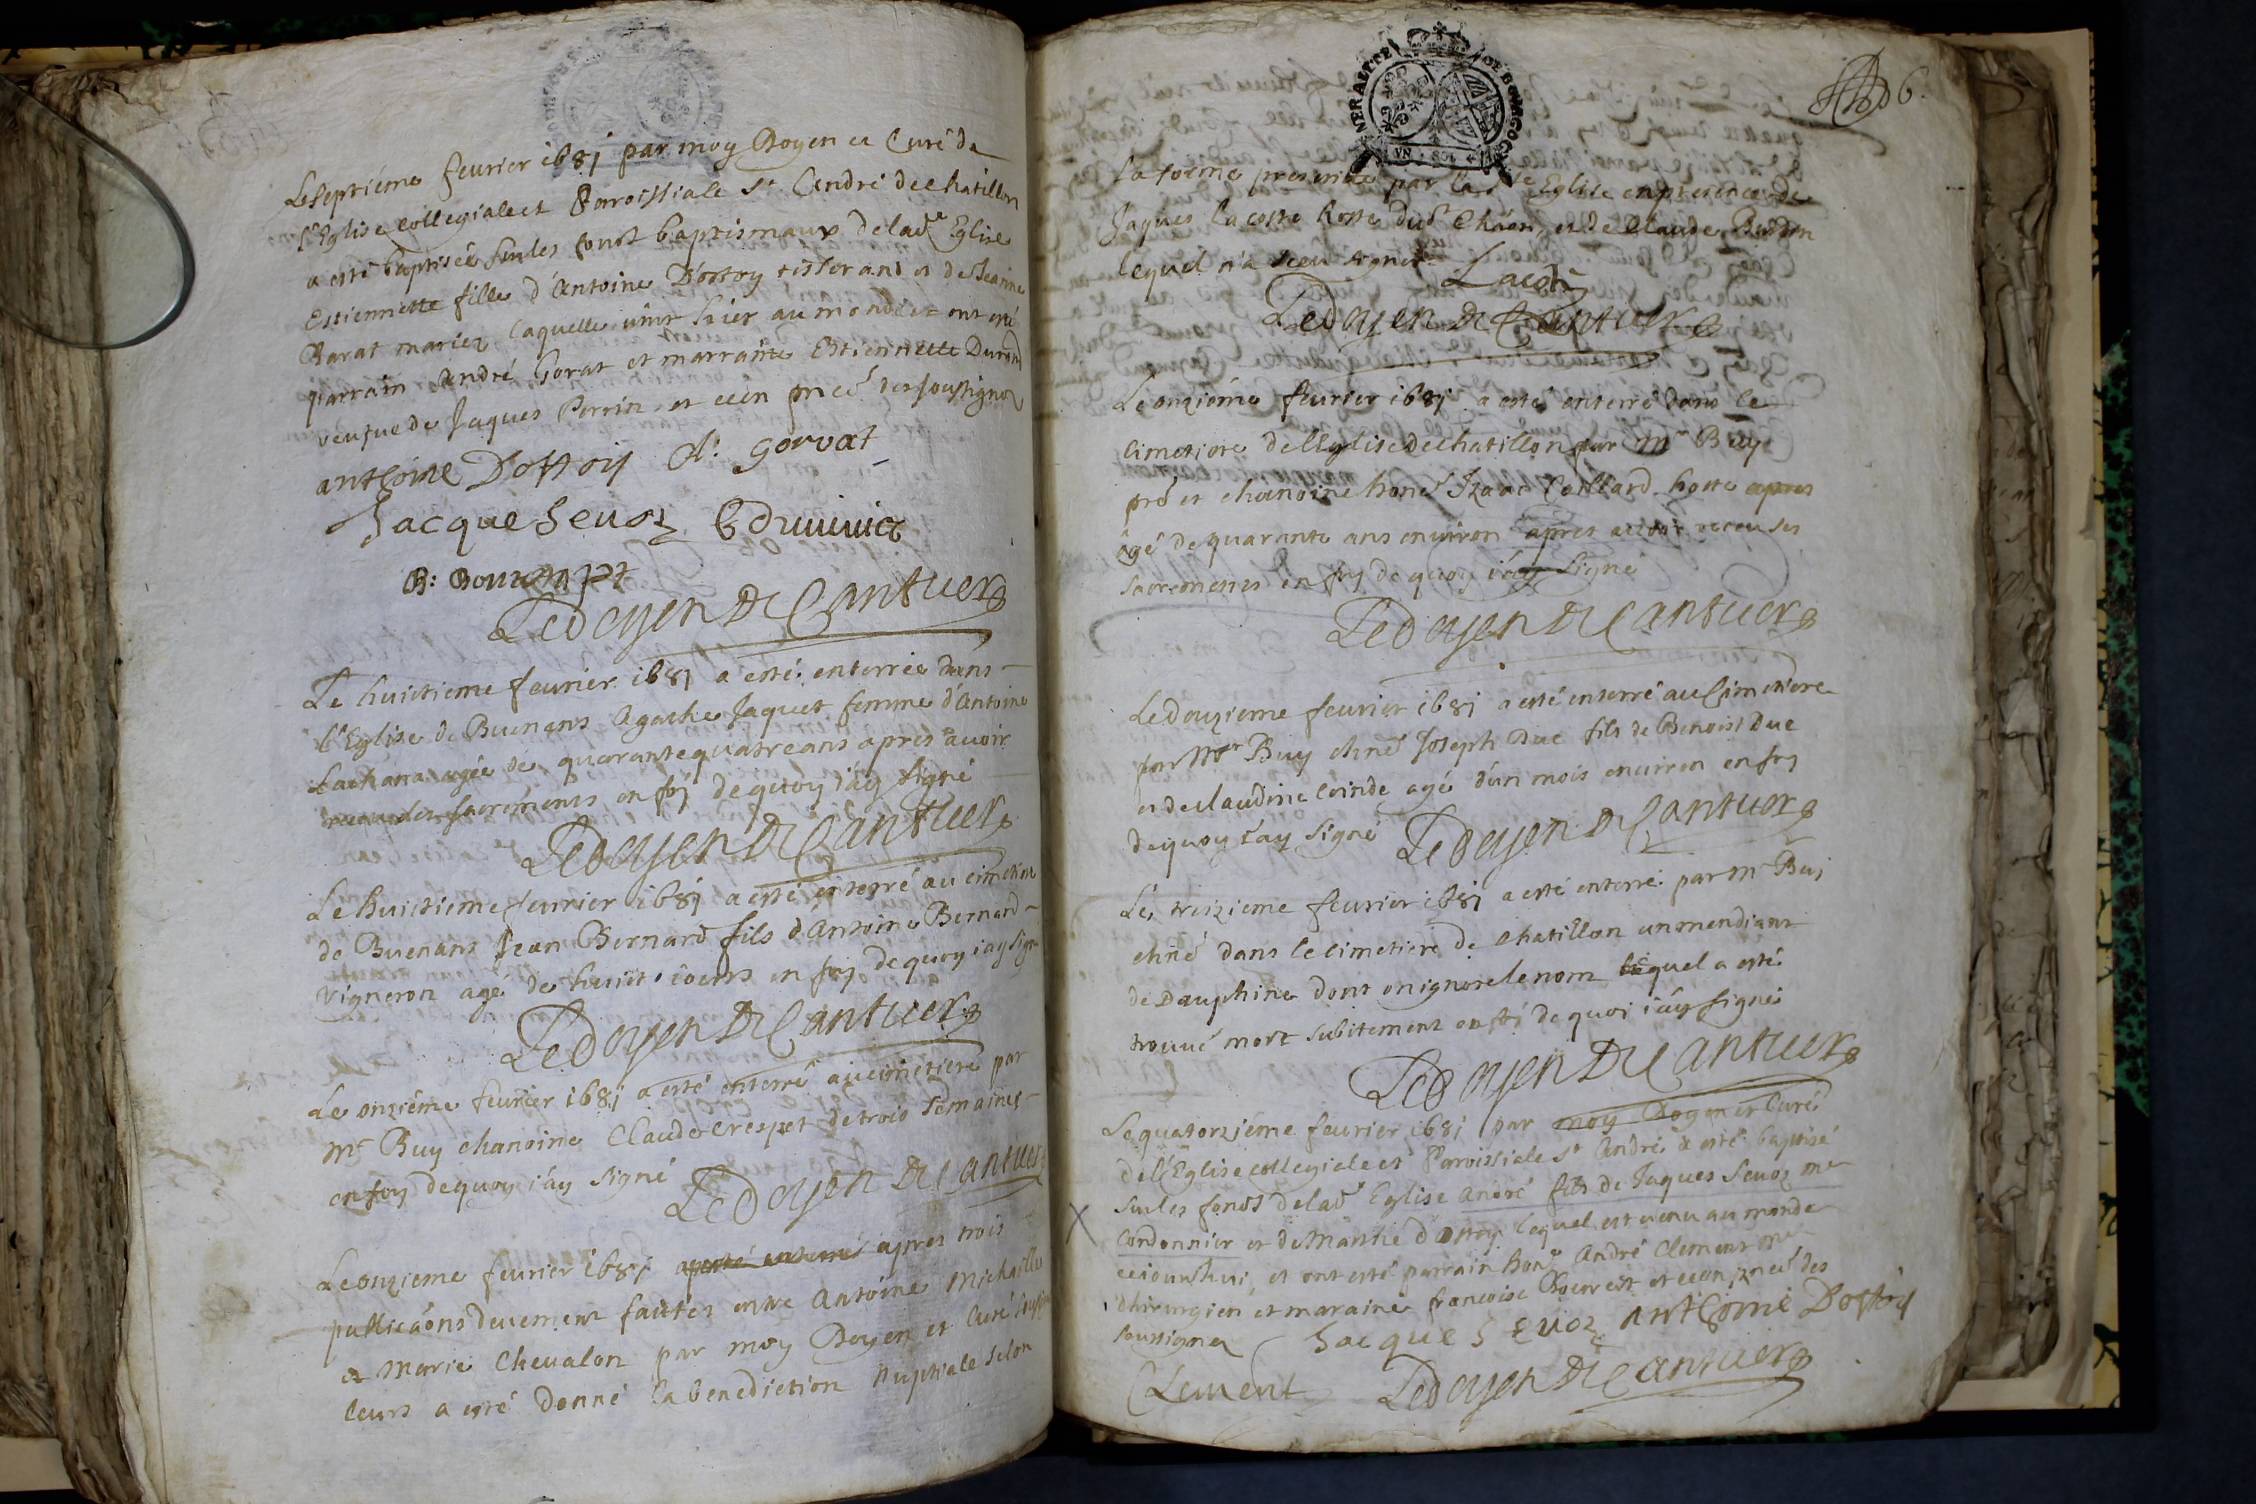 Le septiéme feurier 1681 par moy Doyen et Curé de
l'Eglise collegiale et Parroissiale St André de chatillon
a esté baptisée sur les fonds baptismaux de lade Eglise
Estiennette fille d'Antoine Dostoy tisserand et de Jeanne
Barat mariez laquelle vint hier au monde et ont esté
parrain André Gorat et marraine Estiennette Durand
veufue de Jaques Perrin et ce en pnce des soussignez
anthoine Dostoy A: gorvat
Jacque Seuoz
B:
Ledoyen De Cantuer
Le huictieme feurier 1681 a esté enterrée dans
l'Eglise de Buenans Agathe Jaquet femme d'Antoine
Lachana agée de quarante quatre ans apres auoir
receu les sacrements en foy de quoy i'ay signé
Ledoyen De Cantuer
Le huictieme feurier 1681 a esté enterré au cimetiere
de Buenans Jean Bernard fils d'Antoine Bernard
vigneron agé de huict iours en foy de quoy i'ay signé
Ledoyen De Cantuer
Le onziéme feurier 1681 a esté enterré au cimetiere par
Mr Buy chanoine Claude Crespet de trois semaines
en foy de quoy i'ay signé Ledoyen De Cantuer
Le onzieme feurier 1681 a esté enterré apres trois
publicaons deuement faites entre Antoine Michaille
et Marie Cheualon par moy Doyen et Curé
leurs a esté donné la benediction nuptiale selon
NERALITE DE BOVRGOG
VN SOL
6.
la forme prescritte par lad te Eglise en presence de
Jaques Lacoste hoste dud Chaon, et de Claude
lequel n'a sceu signer Lacoste
Ledoyen De Cantuer
Le onziéme feurier 1681 a esté enterré dans le
cimetiere de l'Eglise de chatillon par Mr Buy
pre et chanoine hone Izaac Caillard hoste apres
âgé de quarante ans enuiron apres auoir receu ses
sacrements en foy de quoy i'ay signé
Ledoyen De Cantuer
Le douzieme feurier 1681 a esté enterré au cimetiere
par Mr Buy chne Joseph Duc fils de Benoist Duc
et de claudine Cinde agé d'un mois enuiron en foy
de quoy i'ay signé Ledoyen De Cantuer
Le treizieme feurier 1681 a esté enterré par Mr Buy
chne dans le cimetiere de chatillon un mendiant
de Dauphine dont on ignore le nom lequel a esté
trouué mort subitement en foi de quoi i'ay signé
Ledoyen De Cantuer
Le quatorziéme feurier 1681 par moy Doyen et Curé
de l'Eglise collegiale et Parroissiale St André a esté baptisé
sur les fonds de lad Eglise André fils de Jaques Seuoz me
X
Cordonnier et de Marthe d'Ostoy lequel est venu au monde
ceiourd'hui et ont esté parrain hone André Clement me
chirurgien et maraine francoise et ce en pnce des
soussignez Jacque Seuoz anthoine Dostoy
Clement Ledoyen De Cantuer